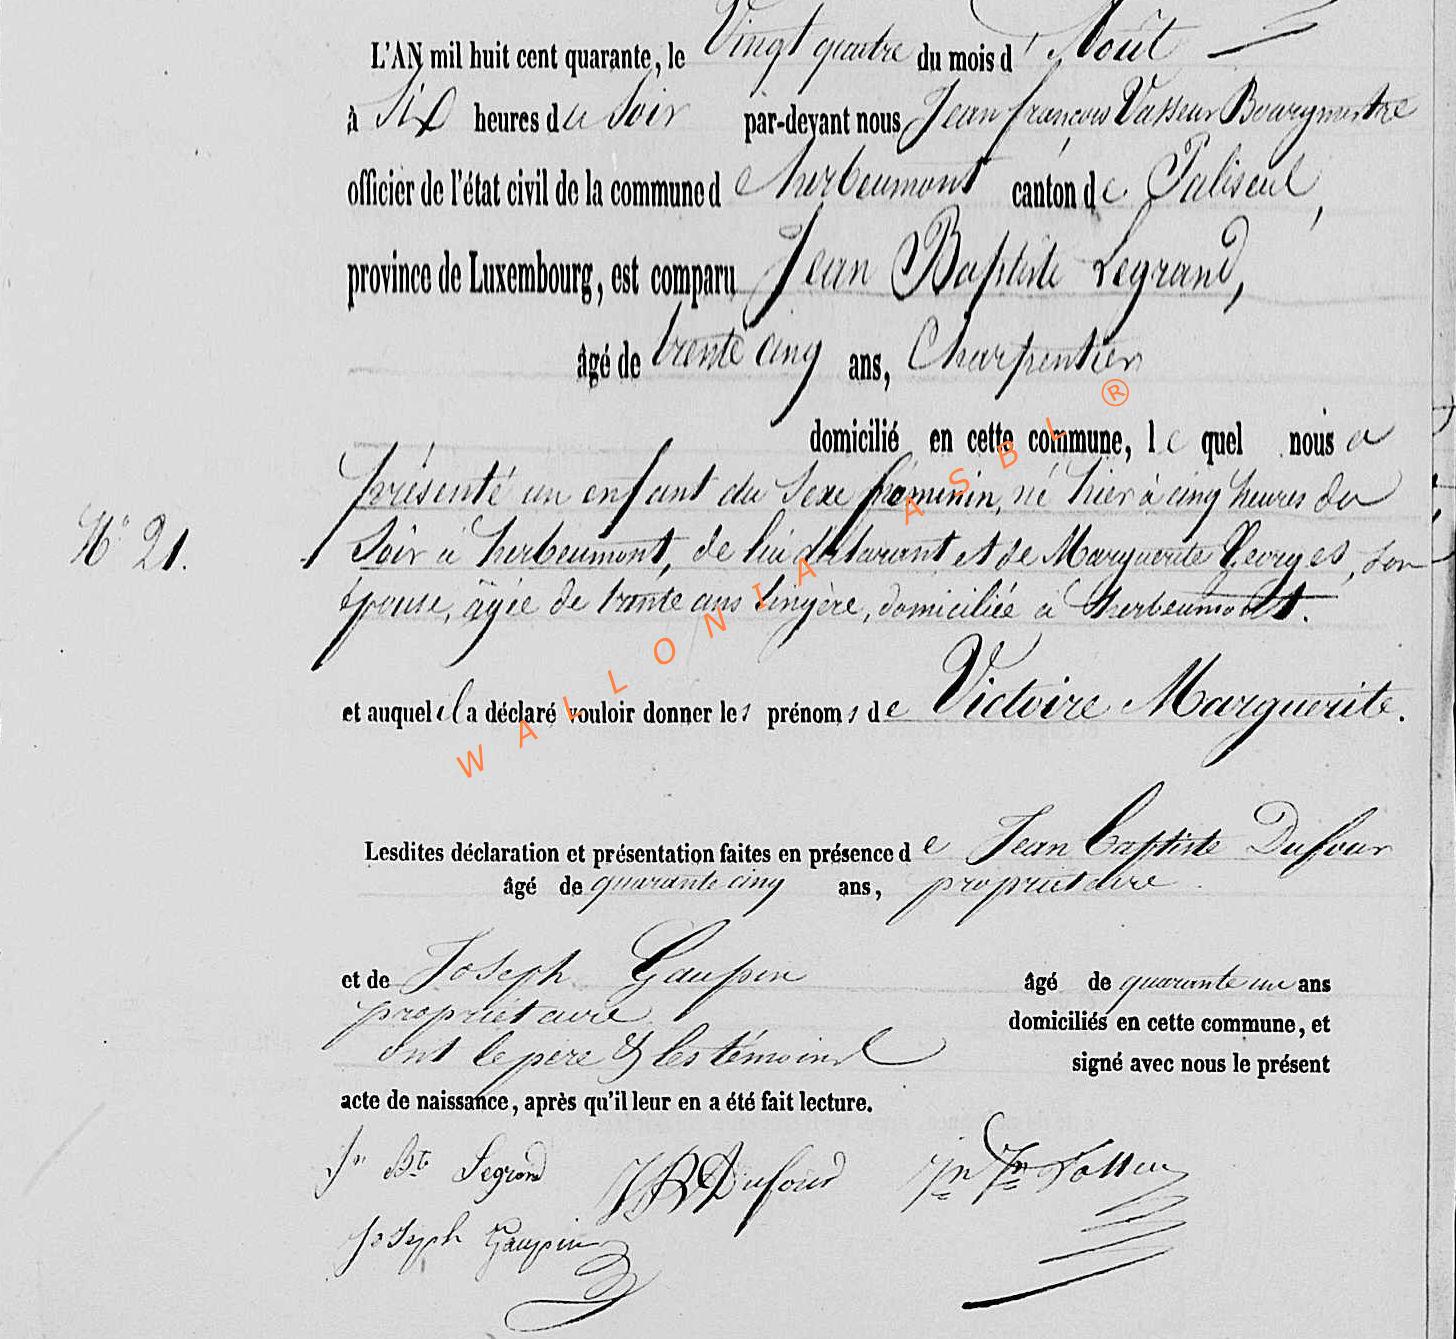 L'AN mil huit cent quarante, le Vingt quatre du mois d'Août
à Six heures du Soir par-devant nous Jean françois Vasseur Bourgmestre
officier de l'état civil de la commune d e herbeumont canton de Paliseul,
province de Luxembourg, est comparu Jean Baptiste Legrand,
âgé de trente cinq ans, Charpentier
domicilié en cette commune, le quel nous a
présenté un enfant du Sexe féminin, né hier à cinq heures du
N° 21. Soir à herbeumont, de lui déclarant et de Marguerite Georges, son
épouse, âgée de trente ans lingère, domiciliée à herbeumont.
et auquel il a déclaré vouloir donner les prénoms de Victoire Marguerite.
Lesdites déclaration et présentation faites en présence de Jean Baptiste Dufour
âgé de quarante cinq ans, propriétaire
et de Joseph Gaupin âgé de quarante un ans
propriétaire domiciliés en cette commune, et
ont le père & les témoins signé avec nous le présent
acte de naissance, après qu'il leur en a été fait lecture.
Jn Bte Legrand JB Dufour Jn Fn Vasseur
Joseph Gaupin
WALLONIA ASBL ®